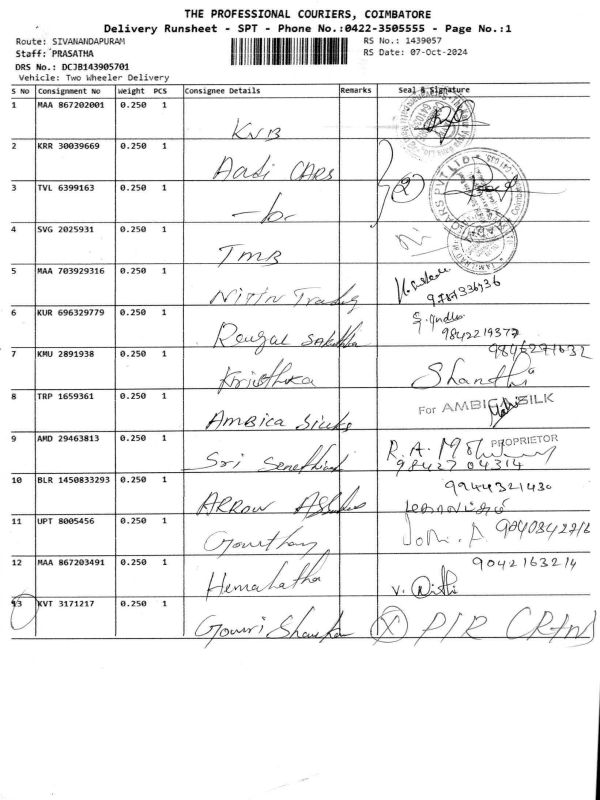 THE PROFESSIONAL COURIERS, COIMBATORE
Delivery Runsheet - SPT - Phone No.:0422-3505555 - Page No.:1
Route: SIVANANDAPURAM
RS No.: 1439057
Staff: PRASATHA
RS Date: 07-Oct-2024
DRS No.: DCJB143905701
Vehicle: Two Wheeler Delivery
S No Consignment No Weight PCS Consignee Details Remarks Seal & Signature
1 MAA 867202001 0.250 1 KNB
2 KRR 30039669 0.250 1 Aadi CARS 2
3 TVL 6399163 0.250 1 -do-
4 SVG 2025931 0.250 1 TMB
5 MAA 703929316 0.250 1 NITIN Trading 9787336936
6 KUR 696329779 0.250 1 9842219377
7 KMU 2891938 0.250 1 Kiruthika 9846271632 Shandhi
8 TRP 1659361 0.250 1 AMBICA Silks For AMBICA SILK
9 AMD 29463813 0.250 1 Sri PROPRIETOR R.A. 9842704314
10 BLR 1450833293 0.250 1 ARROW 9944321430
11 UPT 8005456 0.250 1 Gowtham 9040342716
12 MAA 867203491 0.250 1 Hemalatha 9042163214 V. Nithi
13 KVT 3171217 0.250 1 Gowri Shankar X P/R